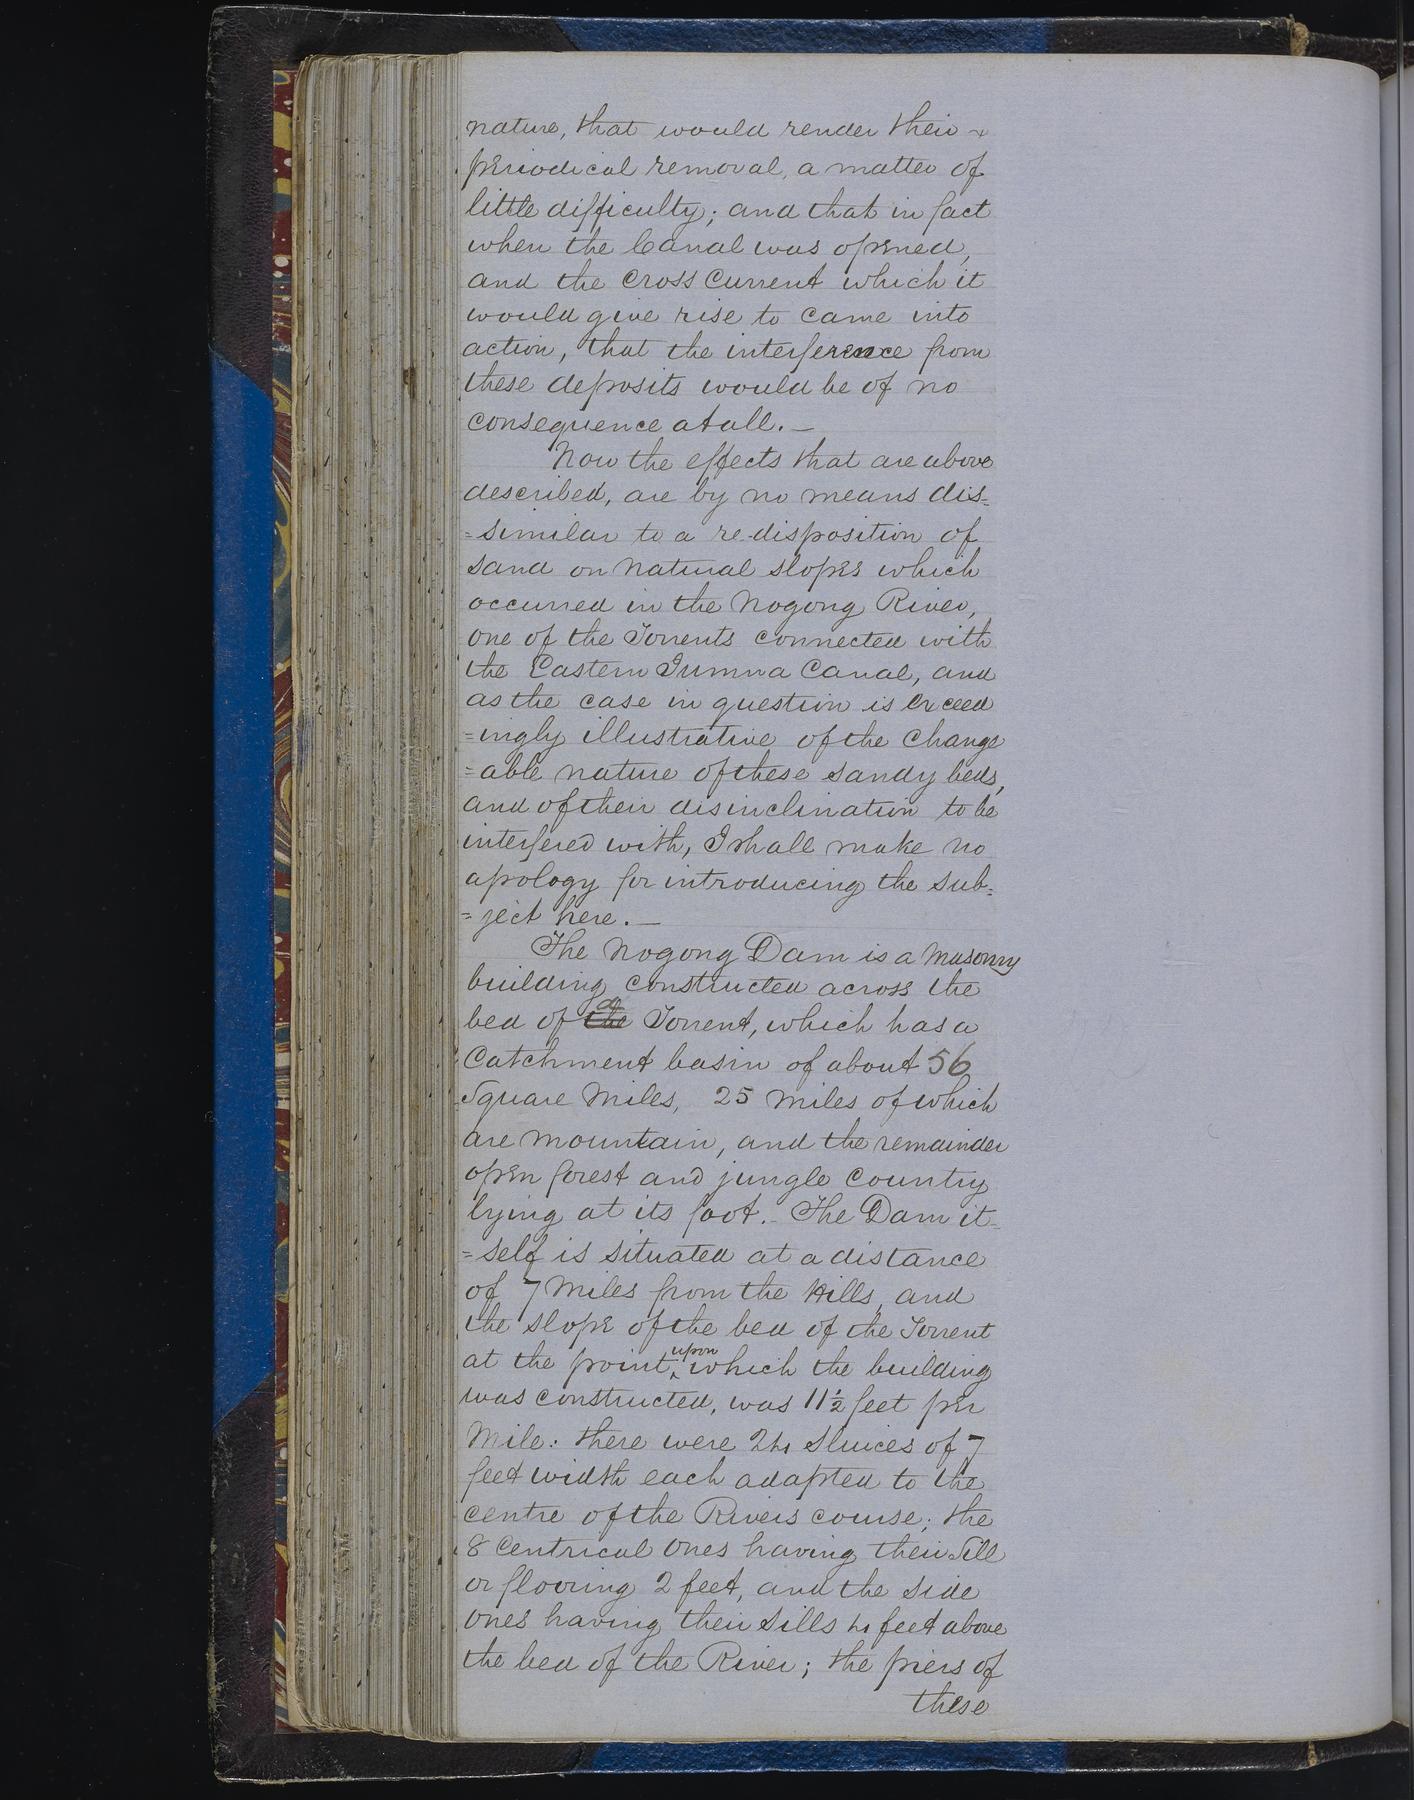 nature, that would render their
periodical removal, a matter of
little difficulty; and that in fact
when the Canal was opened,
and the cross current which it
would give rise to came into
action, that the interference from
these deposits would be of no
consequence atall. —
Now the effects that are above
described, are by no means dis=
=similar to a re-disposition of
sand on natural slopes which
occurred in the Nogong River,
one of the Torrents connected with
the Eastern Jumna Canal, and
as the case in question is exceed
=ingly illustrative of the change
=able nature of these sandy beds,
and of their disinclination to be
interfered with, I shall make no
apology for introducing the sub=
=ject here. —
The Nogong Dam is a Masonry
building constructed across the
bed of a the Torrent, which has a
Catchment basin of about 56
Square Miles, 25 Miles of which
are mountain, and the remainder
open forest and jungle Country
lying at its foot. - The Dam it=
=self is situated at a distance
of 7 Miles from the Hills, and
the slope of the bed of the Torrent
at the point, upon which the building
was constructed, was 11½ feet per
Mile: there were 24 Sluices of 7
feet width each adapted to the
centre of the Rivers course; the
8 Centrical ones having their Sill
or flooring 2 feet, and the side
ones having their sills 4 feet above
the bed of the River; the piers of
these